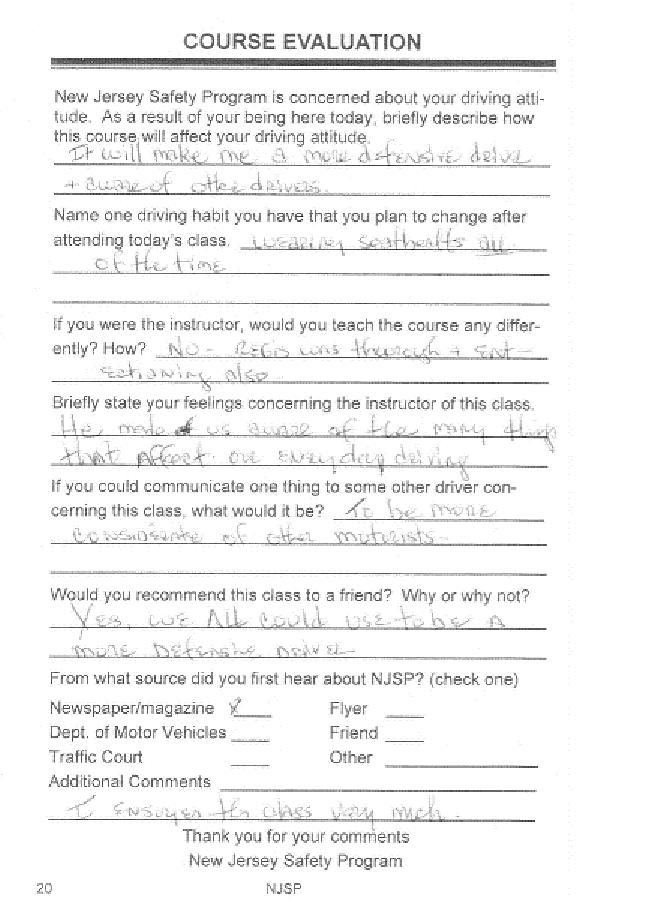 COURSE EVALUATION
New Jersey Safety Program is concerned about your driving atti-
tude. As a result of your being here today, briefly describe how
this course will affect your driving attitude.
It will make me a more defensive driver
+ aware of other drivers.
Name one driving habit you have that you plan to change after
attending today's class. wearing seatbelts all
of the time
If you were the instructor, would you teach the course any differ-
ently? How? No - Regis was thorough +
also
Briefly state your feelings concerning the instructor of this class.
He made us aware of the many things
that affect our everyday driving
If you could communicate one thing to some other driver con-
cerning this class, what would it be? To be more
considerate of other motorists
Would you recommend this class to a friend? Why or why not?
Yes, we All could use to be a
more Defensive driver
From what source did you first hear about NJSP? (check one)
Newspaper/magazine X Flyer
Dept. of Motor Vehicles Friend
Traffic Court Other
Additional Comments
I enjoyed this class very much.
Thank you for your comments
New Jersey Safety Program
20 NJSP